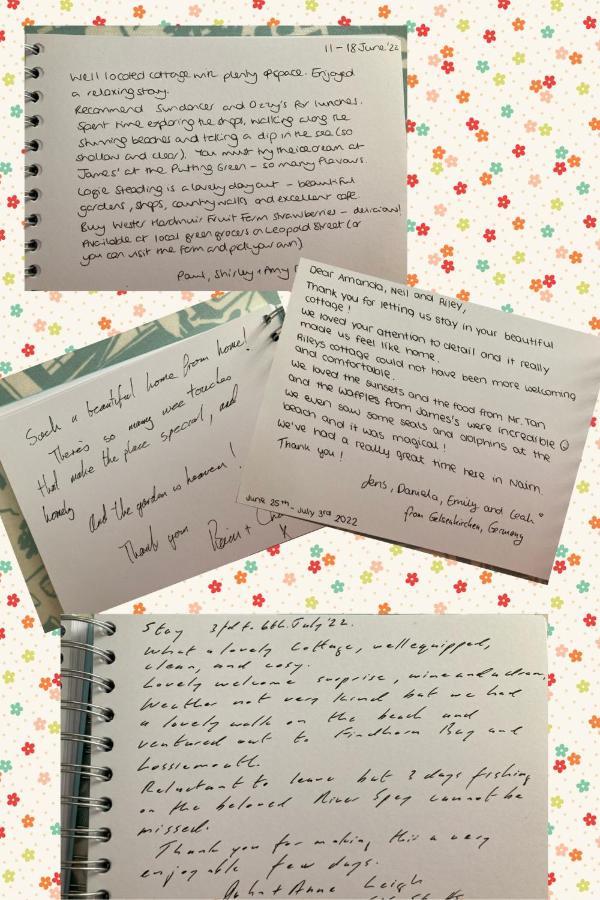 11 - 18 June '22
Well located cottage with plenty of space. Enjoyed
a relaxing stay.
Recommend Sundancer and Ozzy's for lunches.
Spent time exploring the shops, walking along the
stunning beaches and taking a dip in the sea (so
shallow and clear). You must try the icecream at
James' at the Putting Green - so many flavours.
Logie Steading is a lovely day out - beautiful
gardens, shops, country walks and excellent cafe
Buy Wester Hardmuir Fruit Farm Strawberries - delicious!
Available at local green grocers on Leopold Street (or
you can visit the farm and pick your own)
Paul, Shirley + Amy
Dear Amanda, Neil and Riley,
Thank you for letting us stay in your beautiful
cottage!
We loved your attention to detail and it really
made us feel like home.
Rileys cottage could not have been more welcoming
and comfortable.
We loved the sunsets and the food from Mr. Tan
and the waffles from James's were incredible ☺
We even saw some seals and dolphins at the
beach and it was magical!
We've had a really great time here in Nairn.
Thank you!
Jens, Daniela, Emily and Leah
from Gelsenkirchen, Germany
June 25th - July 3rd 2022
Such a beautiful home from home!
There's so many wee touches
that make the place special, and
homely
and the garden is heaven!
Thank you
X
Stay 3rd to 6th July '22.
What a lovely cottage, well equipped,
clean, and cosy.
Lovely welcome surprise, wine and a dram,
Weather not very kind but we had
a lovely walk on the beach and
ventured out to Findhorn Bay and
Lossiemouth.
Reluctant to leave but 3 days fishing
on the beloved River Spey cannot be
missed.
Thank you for making this a very
enjoyable few days.
John + Anne Leigh